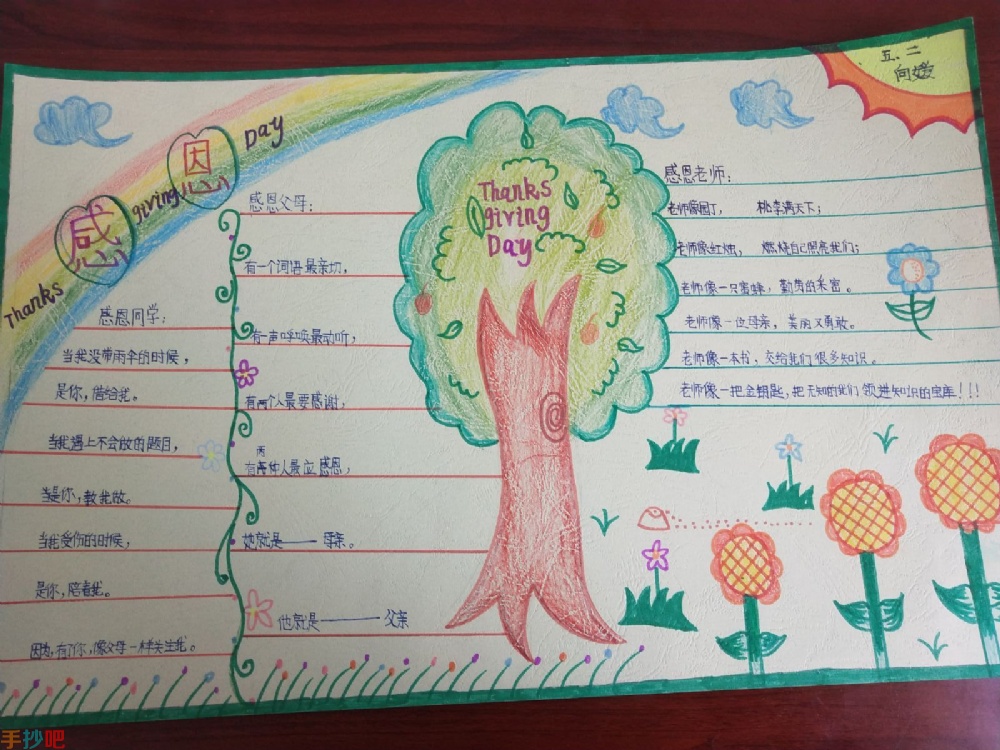 五、二
向媛
感恩
Thanks giving Day
Thanks
giving
Day
感恩同学:
当我没带雨伞的时候,
是你,借给我。
当我遇上不会做的题目,
当是你,教我做。
当我受伤的时候,
是你,陪着我。
因为,有了你,像父母一样关生我。
感恩父母:
有一个词语最亲切,
有一声呼唤最动听,
有两个人最要感谢,
有两种人最应感恩,
她就是—— 母亲。
他就是———— 父亲
感恩老师:
老师像园丁, 桃李满天下;
老师像红烛, 燃烧自己照亮我们;
老师像一只蜜蜂,勤劳的采蜜。
老师像一位母亲,美丽又勇敢。
老师像一本书,交给我们很多知识。
老师像一把金钥匙,把无知的我们领进知识的宝库!!!
手抄吧